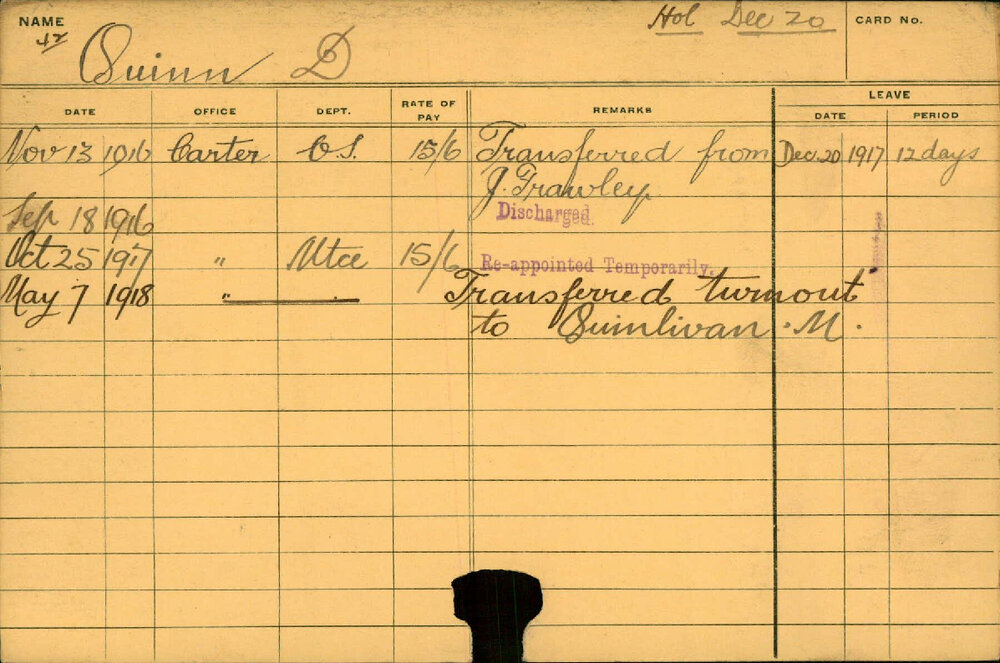 NAME Hol Dec 20 CARD No.
Quinn D
LEAVE
DATE OFFICE DEPT. RATE OF PAY REMARKS DATE PERIOD
Nov 13 1916 Carter O.S. 15/6 Transferred from Dec. 20 1917 12 days
J. Frawley
Sep 18 1916 Discharged.
Oct 25 1917 " Mtce 15/6 Re-appointed Temporarily.
May 7 1918 " Transferred turnout
to Quinlivan . M .